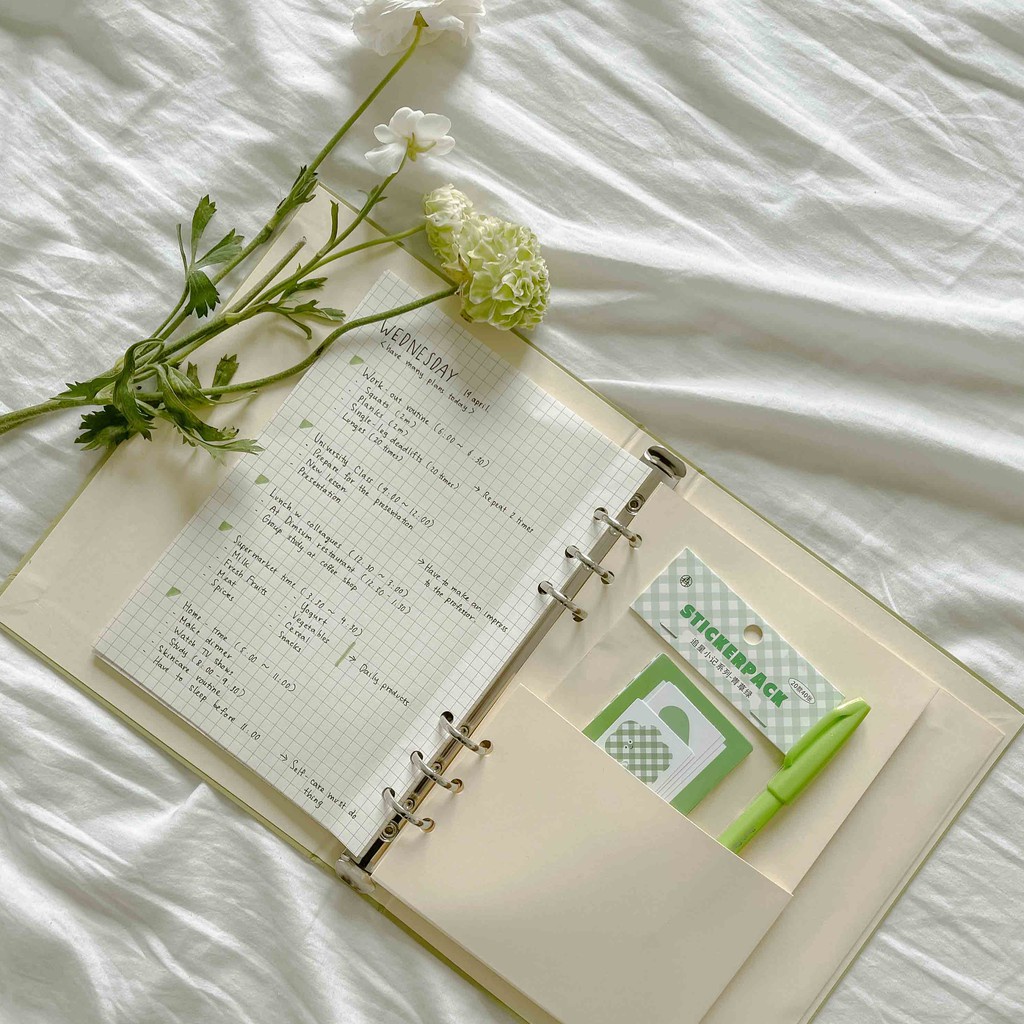 WEDNESDAY
14 april
<have many plans today>
Work-out routine (6:00 ~ 6:30)
- Squats (2m)
- planks (2m)
- Single-leg deadlifts (20 times)
- Lunges (20 times)
→ Repeat 2 times
University Class (9:00 ~ 12:00)
- Prepare for the presentation
- New lesson
- Presentation
→ Have to make an impress
to the professor.
Lunch w/ colleagues (12:30 ~ 3:00)
- At Dimsum restaurant (12:30 - 1:30)
- Group study at coffee shop
Supermarket time (3:30 ~ 4:30)
- Milk
- Fresh Fruits
- Meat
- Spices
- Yogurt
- Vegetables
- Cereal
- Snacks
→ Daily products
Home time (5:00 ~ 11:00)
- Make dinner
- Watch TV shows
- Study (8:00 - 9:30)
- Skincare routine
- Have to sleep before 11:00
→ Self-care must do
thing
STICKERPACK
追星小记系列·青草绿
20款40枚